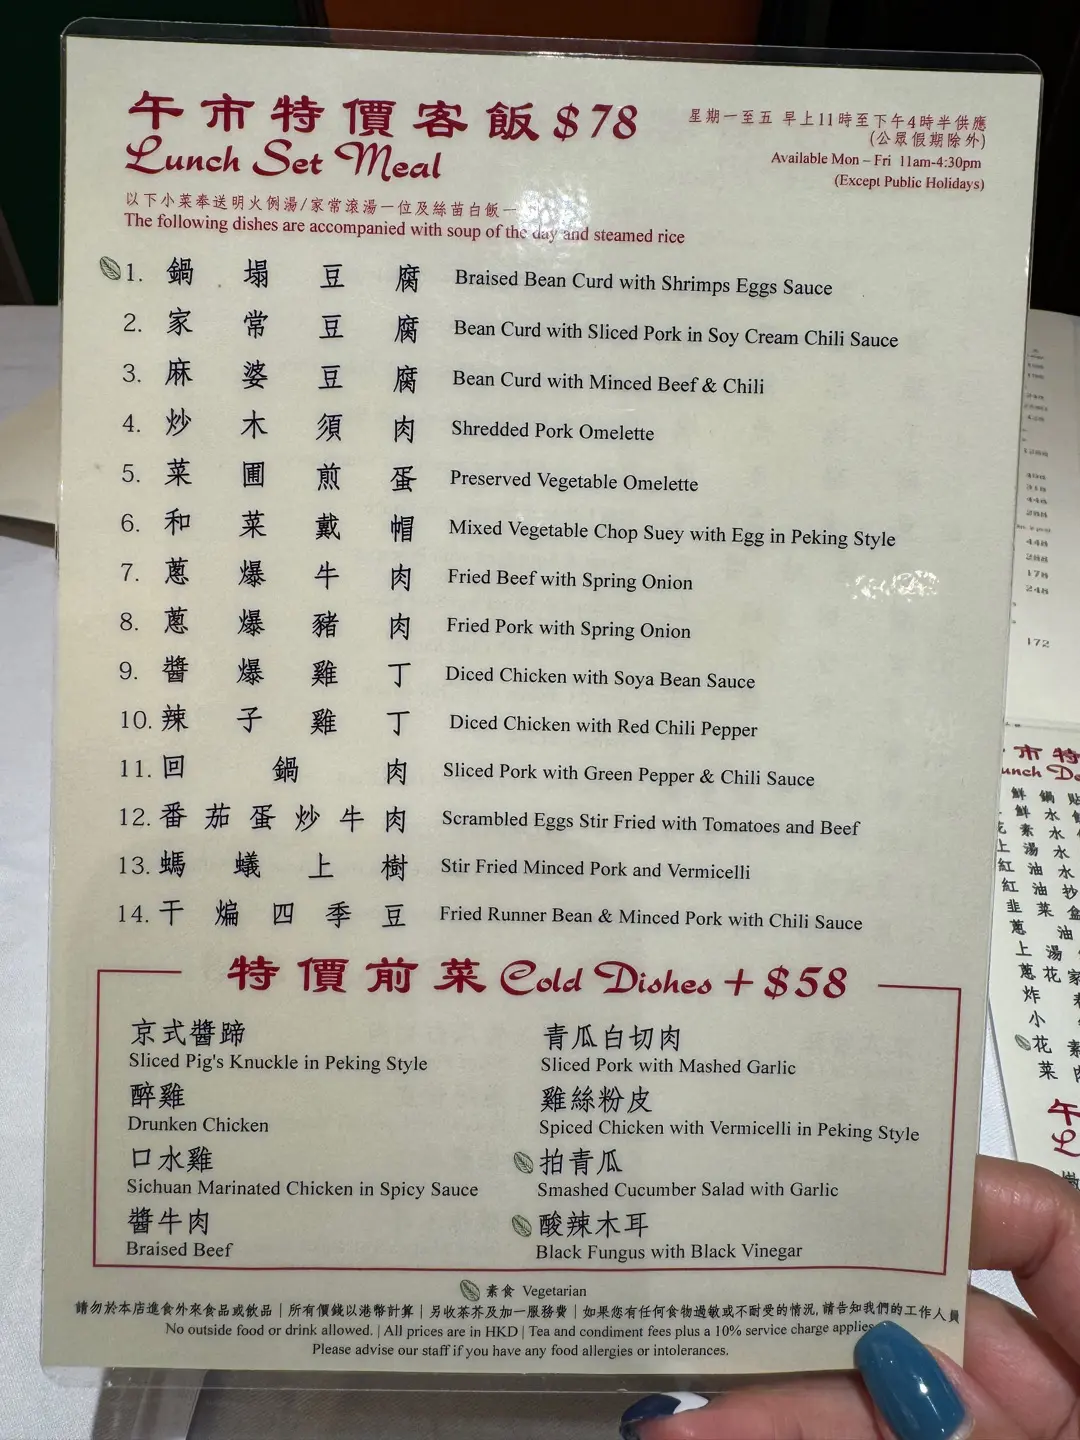 午市特價客飯 $78
Lunch Set Meal
星期一至五 早上11時至下午4時半供應
(公眾假期除外)
Available Mon – Fri 11am-4:30pm
(Except Public Holidays)
以下小菜奉送明火例湯/家常滾湯一位及絲苗白飯一
The following dishes are accompanied with soup of the day and steamed rice
1. 鍋塌豆腐 Braised Bean Curd with Shrimps Eggs Sauce
2. 家常豆腐 Bean Curd with Sliced Pork in Soy Cream Chili Sauce
3. 麻婆豆腐 Bean Curd with Minced Beef & Chili
4. 炒木須肉 Shredded Pork Omelette
5. 菜圃煎蛋 Preserved Vegetable Omelette
6. 和菜戴帽 Mixed Vegetable Chop Suey with Egg in Peking Style
7. 蔥爆牛肉 Fried Beef with Spring Onion
8. 蔥爆豬肉 Fried Pork with Spring Onion
9. 醬爆雞丁 Diced Chicken with Soya Bean Sauce
10. 辣子雞丁 Diced Chicken with Red Chili Pepper
11. 回鍋肉 Sliced Pork with Green Pepper & Chili Sauce
12. 番茄蛋炒牛肉 Scrambled Eggs Stir Fried with Tomatoes and Beef
13. 螞蟻上樹 Stir Fried Minced Pork and Vermicelli
14. 干煸四季豆 Fried Runner Bean & Minced Pork with Chili Sauce
特價前菜 Cold Dishes + $58
京式醬蹄
Sliced Pig's Knuckle in Peking Style
青瓜白切肉
Sliced Pork with Mashed Garlic
醉雞
Drunken Chicken
雞絲粉皮
Spiced Chicken with Vermicelli in Peking Style
口水雞
Sichuan Marinated Chicken in Spicy Sauce
拍青瓜
Smashed Cucumber Salad with Garlic
醬牛肉
Braised Beef
酸辣木耳
Black Fungus with Black Vinegar
素食 Vegetarian
請勿於本店進食外來食品或飲品 | 所有價錢以港幣計算 | 另收茶芥及加一服務費 | 如果您有任何食物過敏或不耐受的情況, 請告知我們的工作人員
No outside food or drink allowed. | All prices are in HKD | Tea and condiment fees plus a 10% service charge applies
Please advise our staff if you have any food allergies or intolerances.
448
288
178
248
172
午市特
unch De
鮮鍋貼
鮮水
素水
上湯水
紅油水
紅油抄
韭菜
蔥油
上湯
蔥花家
炸
小
花素
菜肉
午
L